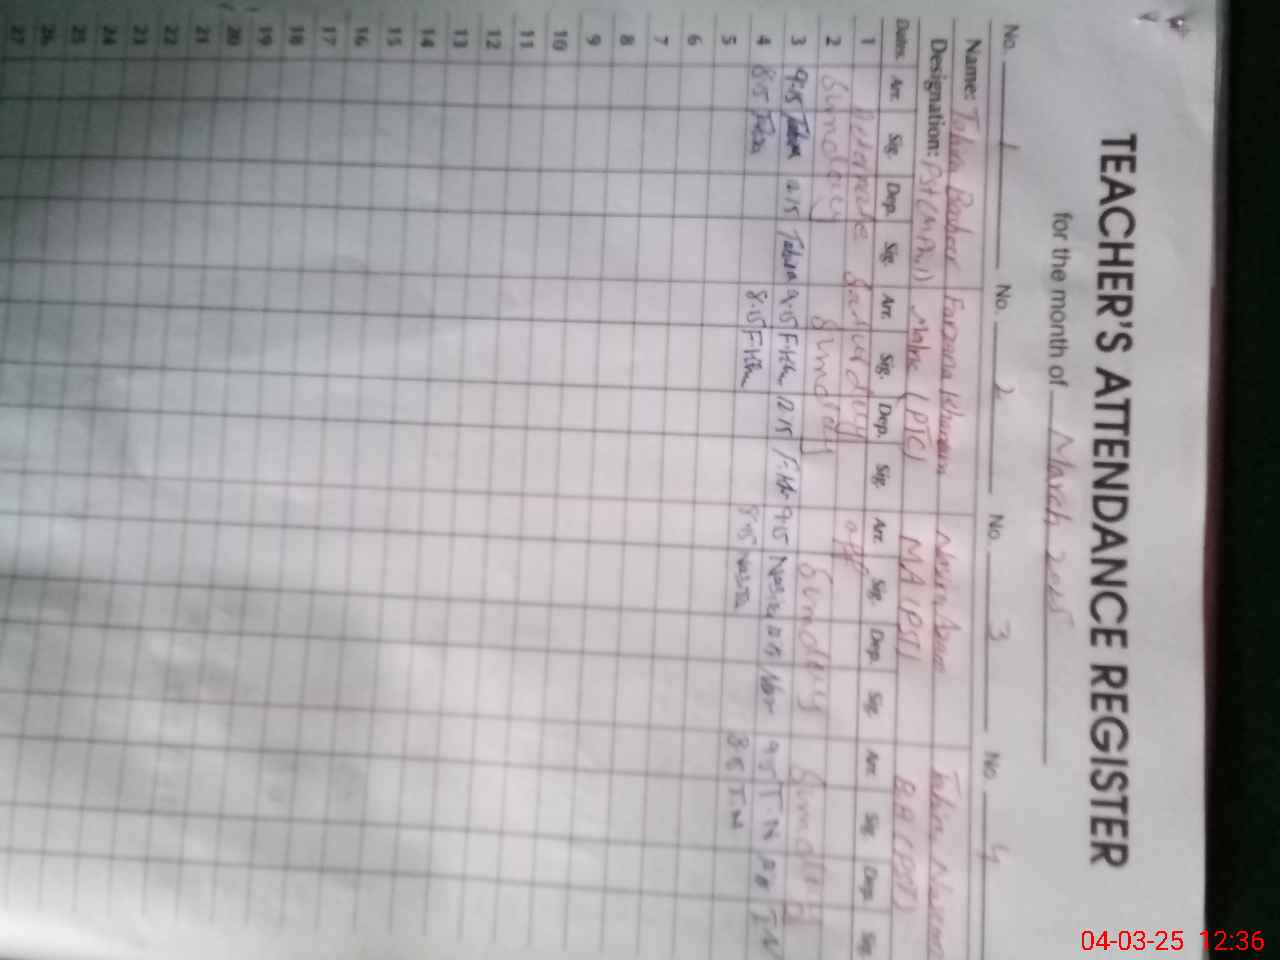 TEACHER'S ATTENDANCE REGISTER
for the month of March 2025
No. 1 No. 2 No. 3 No. 4
Name: Tahira Farzana
Designation: PST (M.Phil) Matric (PTC) MA (PST) BA (PST)
Dates Arr. Sig. Dep. Sig. Arr. Sig. Dep. Sig. Arr. Sig. Dep. Sig. Arr. Sig. Dep. Sig.
1 Alternate Saturday off
2 Sunday Sunday Sunday Sunday
3 9:15 Tahira 12:15 Tahira 9:15 F.Kh 12:15 F.Kh 9:15 9:15 T.N T.N
4 8:15 Tahira 8:15 F.Kh 8:15 8:15 T.N
5
6
7
8
9
10
11
12
13
14
15
16
17
18
19
20
21
22
23
24
25
26
27
04-03-25 12:36